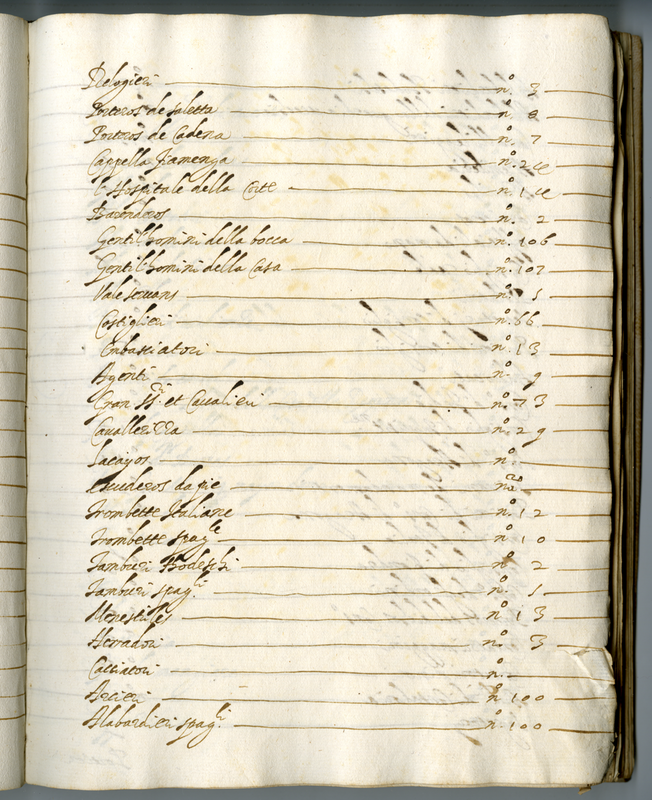 Relogieri n.º 3
Porteros de saletta n.º 8
Porteros de Cadena n.º 7
Cappella fiamenga n.º 24
l'Hospitale della Corte n.º 14
Barenderos n.º 2
Gentil'homini della bocca n.º 106
Gentil'homini della Casa n.º 107
Valeseruans n.º 5
Costiglieri n.º 66
Embasciatori n.º 13
Agenti n.º 9
Gran SS.ri et Caualieri n.º 73
Cauallerizza n.º 29
Lacayos n.º
Escuderos da pie n.º
Trombette Italiane n.º 12
Trombette spag.le n.º 10
Tamburi Todeschi n.º 2
Tamburi spag.li n.º 5
Menestriles n.º 13
Herradori n.º 3
Cacciatori n.º
Arcieri n.º 100
Alabardieri spag.li n.º 100